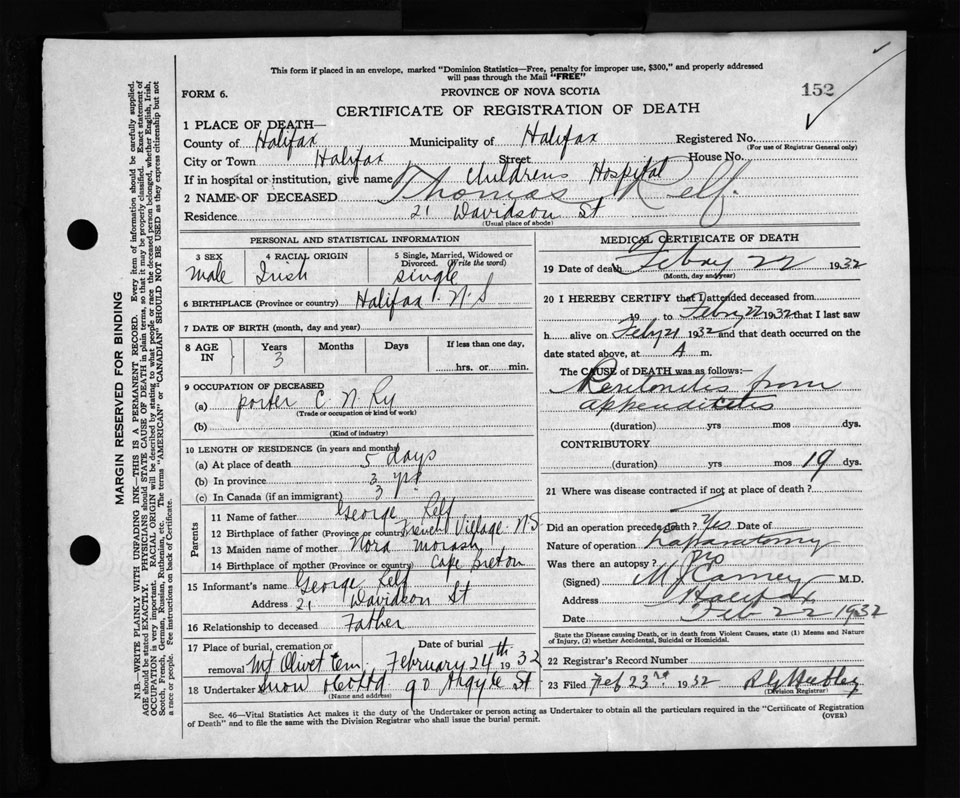 This form if placed in an envelope, marked "Dominion Statistics—Free, penalty for improper use, $300," and properly addressed
will pass through the Mail "FREE"
FORM 6.
PROVINCE OF NOVA SCOTIA
152
CERTIFICATE OF REGISTRATION OF DEATH
1 PLACE OF DEATH—
County of Halifax Municipality of Halifax Registered No.
(For use of Registrar General only)
City or Town Halifax Street House No.
If in hospital or institution, give name Childrens Hospital
2 NAME OF DECEASED Thomas Relf.
Residence 21 Davidson St
(Usual place of abode)
PERSONAL AND STATISTICAL INFORMATION
3 SEX 4 RACIAL ORIGIN 5 Single, Married, Widowed or
Divorced. (Write the word)
Male Irish single
6 BIRTHPLACE (Province or country) Halifax N.S
7 DATE OF BIRTH (month, day and year)
8 AGE IN Years Months Days If less than one day,
3 hrs. or min.
9 OCCUPATION OF DECEASED
(a) porter C.N.Ry
(Trade or occupation or kind of work)
(b)
(Kind of industry)
10 LENGTH OF RESIDENCE (in years and months)
(a) At place of death 5 days
(b) In province 3 yrs
(c) In Canada (if an immigrant) 3
Parents
11 Name of father George Relf
12 Birthplace of father (Province or country) French Village N.S
13 Maiden name of mother Nora Morash
14 Birthplace of mother (Province or country) Cape Breton
15 Informant's name George Relf
Address 21 Davidson St
16 Relationship to deceased Father
17 Place of burial, cremation or Date of burial
removal Mt Olivet Cem, February 24th 1932
18 Undertaker Snow & Co Ltd 90 Argyle St
(Name and address)
MEDICAL CERTIFICATE OF DEATH
19 Date of death Febry 22 1932
(Month, day and year)
20 I HEREBY CERTIFY that I attended deceased from
19 to Febry 22 1932 that I last saw
h alive on Feby 21 1932 and that death occurred on the
date stated above, at A m.
The CAUSE OF DEATH was as follows:—
Peritonitis from
appendicitis
(duration) yrs mos dys.
CONTRIBUTORY
(duration) yrs mos 19 dys.
21 Where was disease contracted if not at place of death?
Did an operation precede death? Yes Date of
Nature of operation Laparatomy
Was there an autopsy? No
(Signed) M.D.
Address Halifax
Date Feb 22 1932
State the Disease causing Death, or in death from Violent Causes, state (1) Means and Nature
of Injury, (2) whether Accidental, Suicidal or Homicidal.
22 Registrar's Record Number
23 Filed Feb 23rd 1932
(Division Registrar)
Sec. 46—Vital Statistics Act makes it the duty of the Undertaker or person acting as Undertaker to obtain all the particulars required in the "Certificate of Registration
of Death" and to file the same with the Division Registrar who shall issue the burial permit.
(OVER)
MARGIN RESERVED FOR BINDING
N.B.—WRITE PLAINLY WITH UNFADING INK—THIS IS A PERMANENT RECORD. Every item of information should be carefully supplied.
AGE should be stated EXACTLY. PHYSICIANS should STATE CAUSE OF DEATH in plain terms, so that it may be properly classified. Exact statement of
OCCUPATION is very important. RACIAL ORIGIN will be described by stating to what people or race the deceased person belonged, whether English, Irish,
Scotch, French, German, Russian, Ruthenian, etc. The terms "AMERICAN" or "CANADIAN" SHOULD NOT BE USED as they express citizenship but not
a race or people. See instructions on back of Certificate.